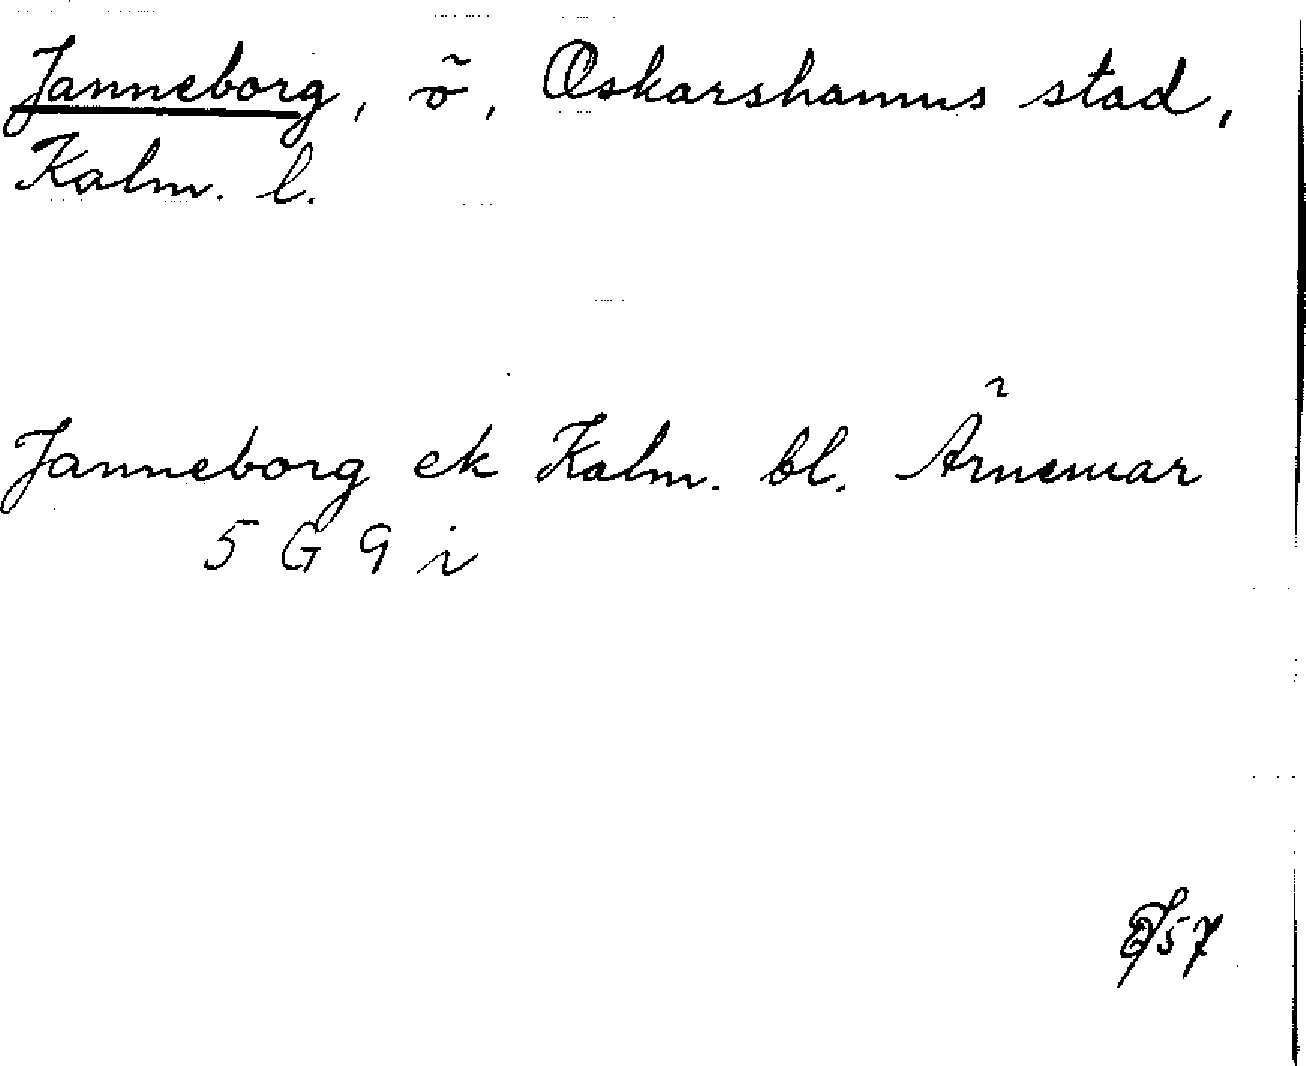 Janneborg, ö, Oskarshamns stad,
Kalm. l.
Janneborg ek Kalm. bl. Ärnemar
5 G 9 i
57